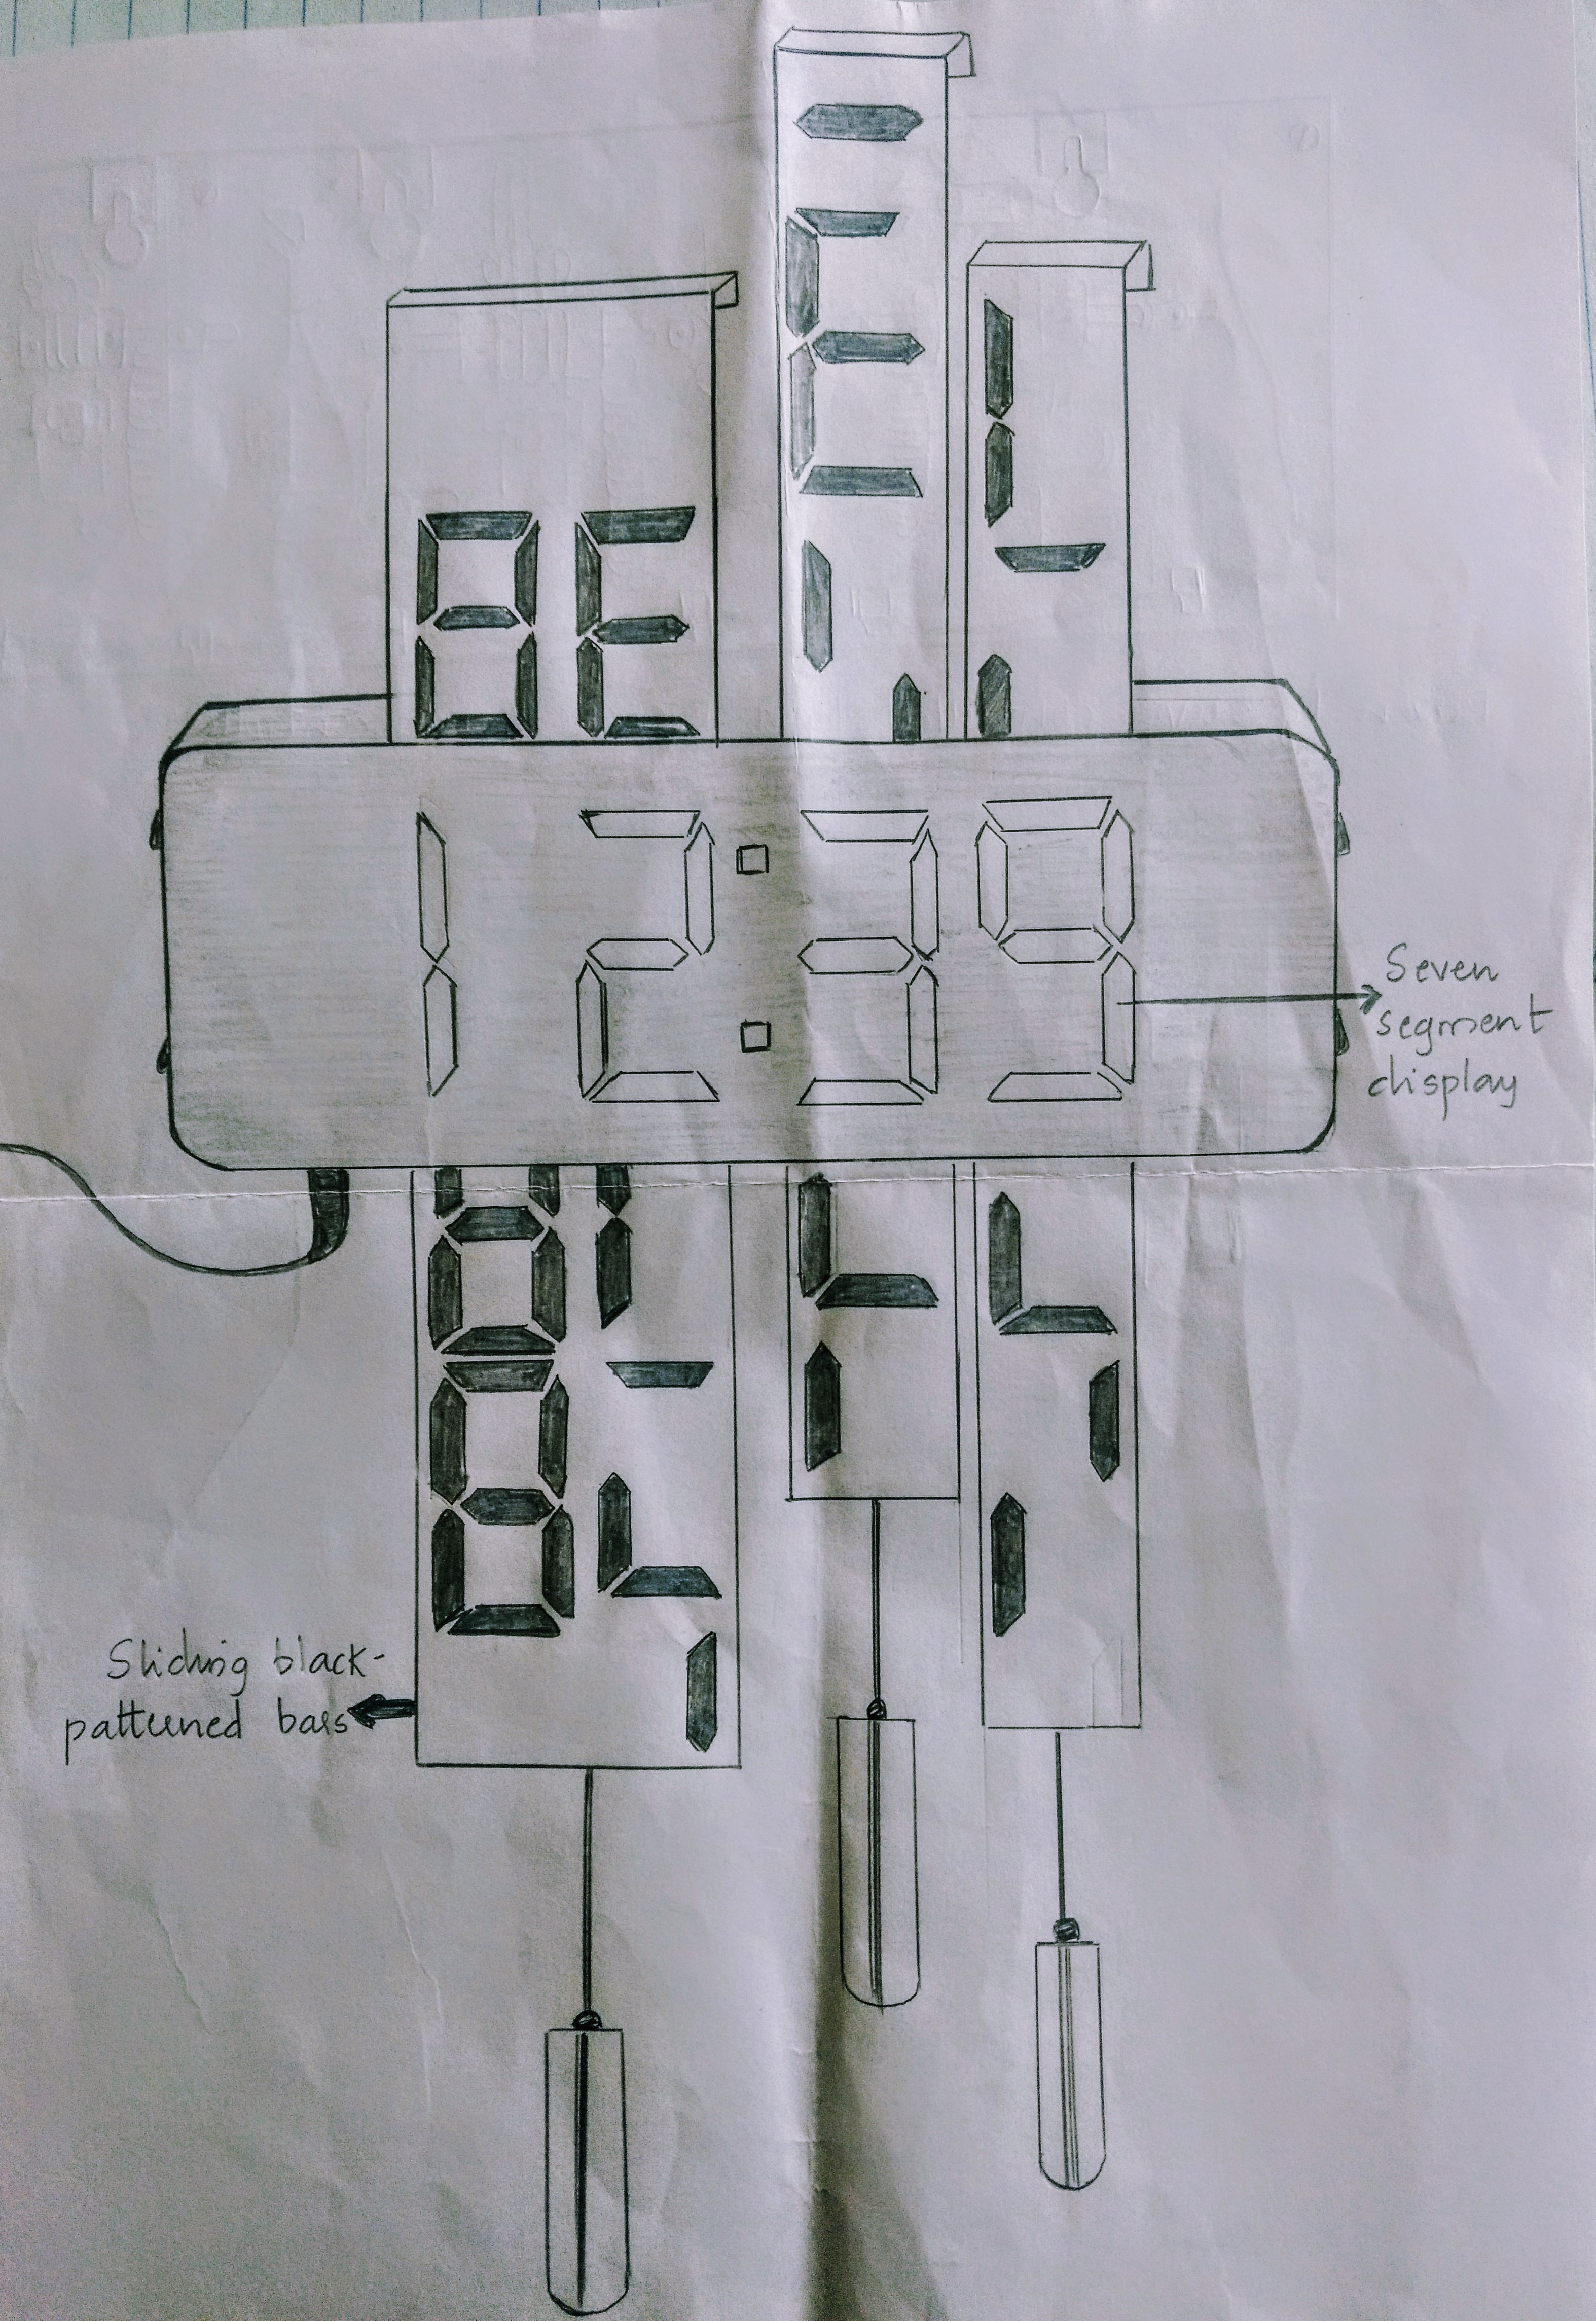 12:39
Seven
segment
display
Sliding black-
patterned bars